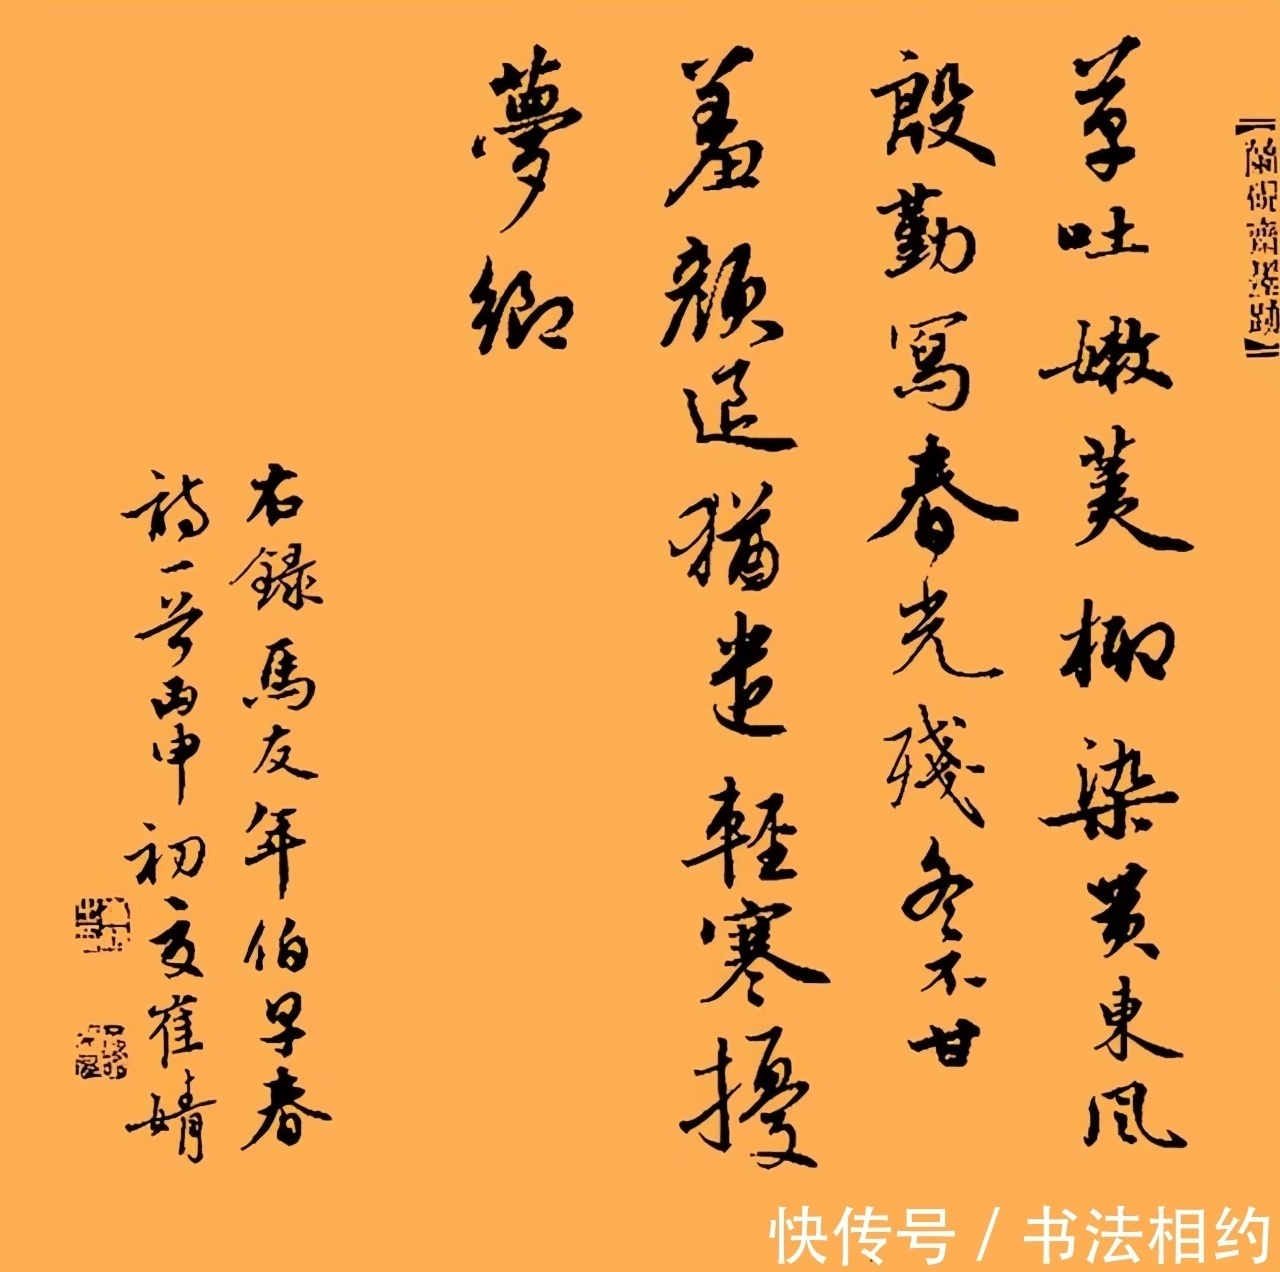 草吐嫩荑柳染黃東風
殷勤寫春光殘冬不甘
羞顏退猶遣輕寒擾
夢鄉
右錄馬友年伯早春
詩一首丙申初夏崔婧
快传号 / 书法相约